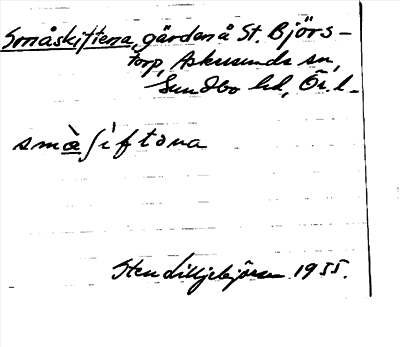 Småskiftena, gärden å St. Björs-
torp, Askersunds sn,
Sundbo hd, Ör. l.
småʃiftona
Sten Lilljebjörn 1955.